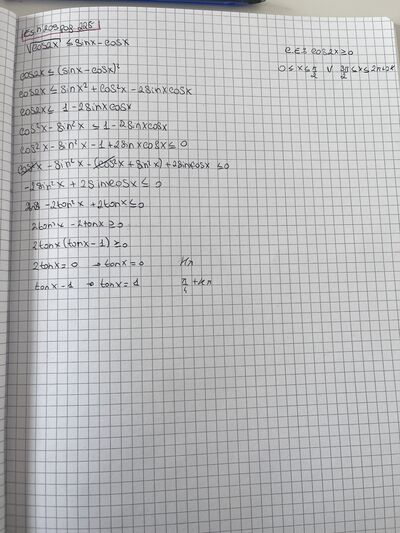 es n°209 pag 225
√cos2x ≤ sinx - cosx
C.E.: cos2x ≥ 0
0 ≤ x ≤ π/2 V 3π/2 ≤ x ≤ 2π+2kπ
cos2x ≤ (sinx - cosx)²
cos2x ≤ sinx² + cos²x - 2sinxcosx
cos2x ≤ 1 - 2sinxcosx
cos²x - sin²x ≤ 1 - 2sinxcosx
cos²x - sin²x - 1 + 2sinxcosx ≤ 0
cos²x - sin²x - (cos²x + sin²x) + 2sinxcosx ≤ 0
-2sin²x + 2sinxcosx ≤ 0
-2tan²x + 2tanx ≤ 0
2tan²x - 2tanx ≥ 0
2tanx (tanx - 1) ≥ 0
2tanx = 0 → tanx = 0 kπ
tanx - 1 → tanx = 1 π/4 + kπ